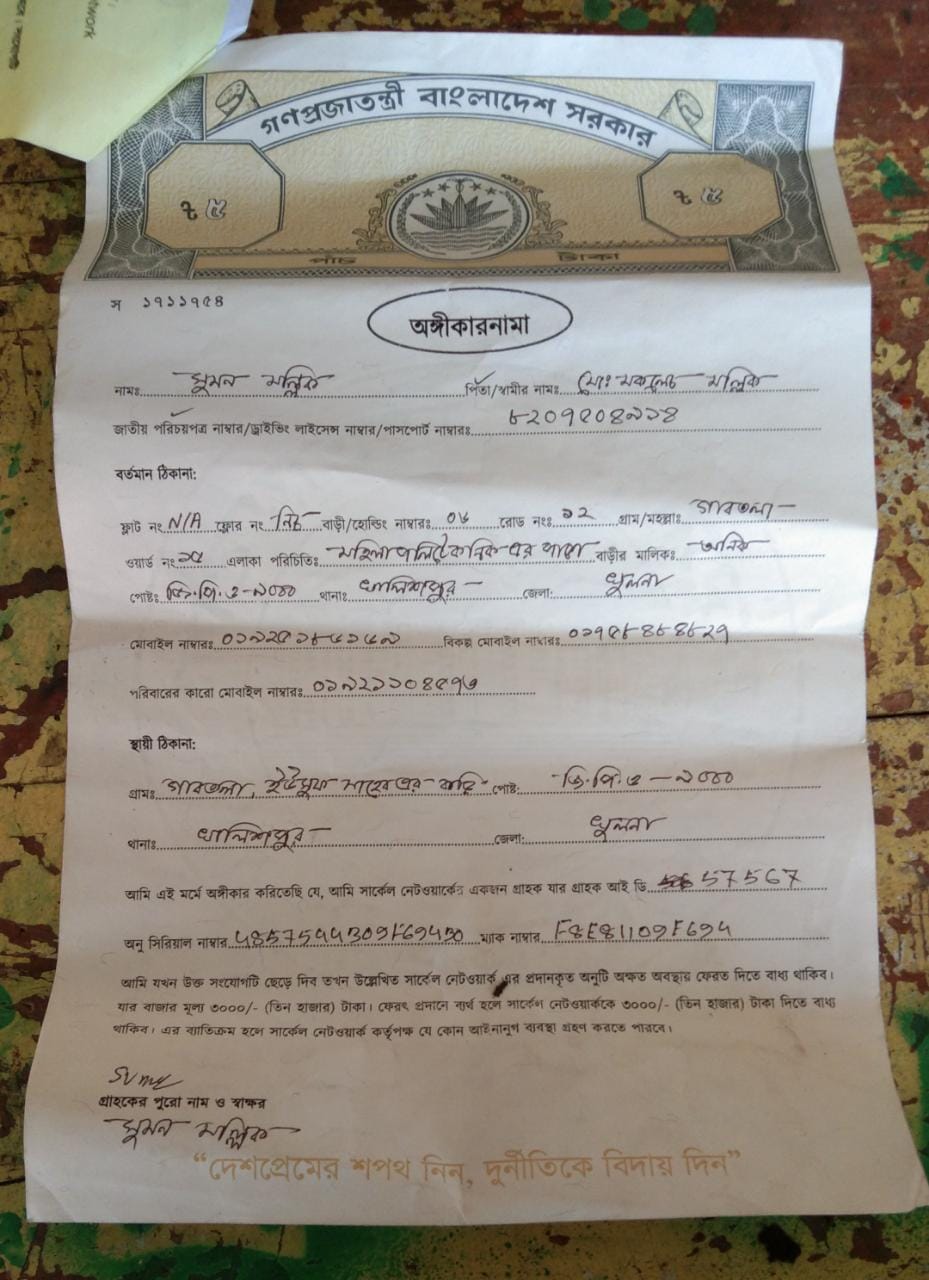 গণপ্রজাতন্ত্রী বাংলাদেশ সরকার
৳ ৫ ৳ ৫
পাঁচ টাকা
স ১৭১১৭৫৪
অঙ্গীকারনামা
নামঃ সুমন মল্লিক পিতা/স্বামীর নামঃ মোঃ মকলেচ মল্লিক
জাতীয় পরিচয়পত্র নাম্বার/ড্রাইভিং লাইসেন্স নাম্বার/পাসপোর্ট নাম্বারঃ ৮২০৭৫০৪৯১৪
বর্তমান ঠিকানা:
ফ্লাট নং N/A ফ্লোর নং নিচ বাড়ী/হোল্ডিং নাম্বারঃ ০৬ রোড নংঃ ১২ গ্রাম/মহল্লাঃ গাবতলা
ওয়ার্ড নং ১৫ এলাকা পরিচিতিঃ মহিলা পলিটেকনিক এর পাশে বাড়ীর মালিকঃ
পোষ্টঃ জি.পি.ও-৯০০০ থানাঃ খালিশপুর জেলা: খুলনা
মোবাইল নাম্বারঃ বিকল্প মোবাইল নাম্বারঃ ০১৭৫৮৪৮৪৮২৭
পরিবারের কারো মোবাইল নাম্বারঃ ০১৯২১১০৪৫৭৬
স্থায়ী ঠিকানা:
গ্রামঃ গাবতলা, ইউসুফ সাহেব এর বাড়ি পোষ্ট: জি.পি.ও-৯০০০
থানাঃ খালিশপুর জেলা: খুলনা
আমি এই মর্মে অঙ্গীকার করিতেছি যে, আমি সার্কেল নেটওয়ার্কের একজন গ্রাহক যার গ্রাহক আই ডি 57567
অনু সিরিয়াল নাম্বার 48575944309F69430 ম্যাক নাম্বার F8E81109F694
আমি যখন উক্ত সংযোগটি ছেড়ে দিব তখন উল্লেখিত সার্কেল নেটওয়ার্ক এর প্রদানকৃত অনুটি অক্ষত অবস্থায় ফেরত দিতে বাধ্য থাকিব।
যার বাজার মূল্য ৩০০০/- (তিন হাজার) টাকা। ফেরৎ প্রদানে ব্যর্থ হলে সার্কেল নেটওয়ার্ককে ৩০০০/- (তিন হাজার) টাকা দিতে বাধ্য
থাকিব। এর ব্যাতিক্রম হলে সার্কেল নেটওয়ার্ক কর্তৃপক্ষ যে কোন আইনানুগ ব্যবস্থা গ্রহণ করতে পারবে।
গ্রাহকের পুরো নাম ও স্বাক্ষর
সুমন মল্লিক
“দেশপ্রেমের শপথ নিন, দুর্নীতিকে বিদায় দিন”